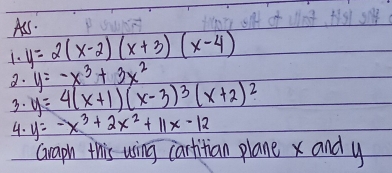 Ass.
1. y = 2(x-2)(x+3)(x-4)
2. y = -x³ + 3x²
3. y = 4(x+1)(x-3)³(x+2)²
4. y = -x³ + 2x² + 11x - 12
Graph this using cartitian plane x and y